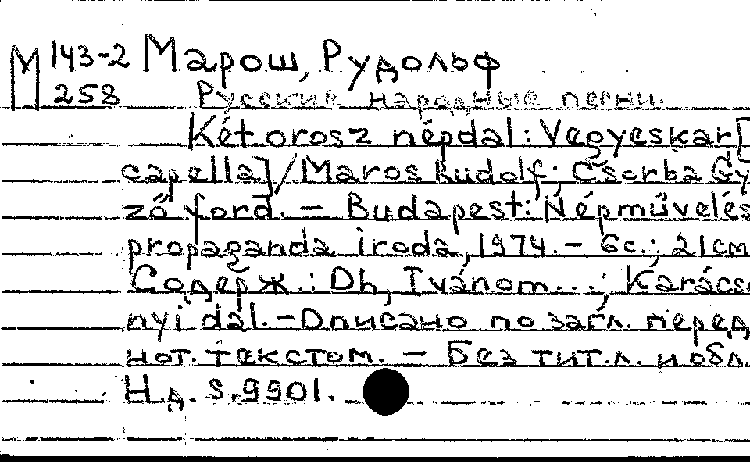 М 143-2 Марош, Рудольф
258 Русские народные песни.
Két orosz népdal: Vegyeskar [
capella] / Maros Rudolf; Cserba Gy
ző ford. – Budapest: Népművelés
propaganda iroda, 1974. – 6 с.; 21 см
Содерж.: Oh, Ivánom...; Karács
nyi dal. – Описано по загл. перед
нот. текстом. – Без тит. л. и обл.
Н.д. S.9901.